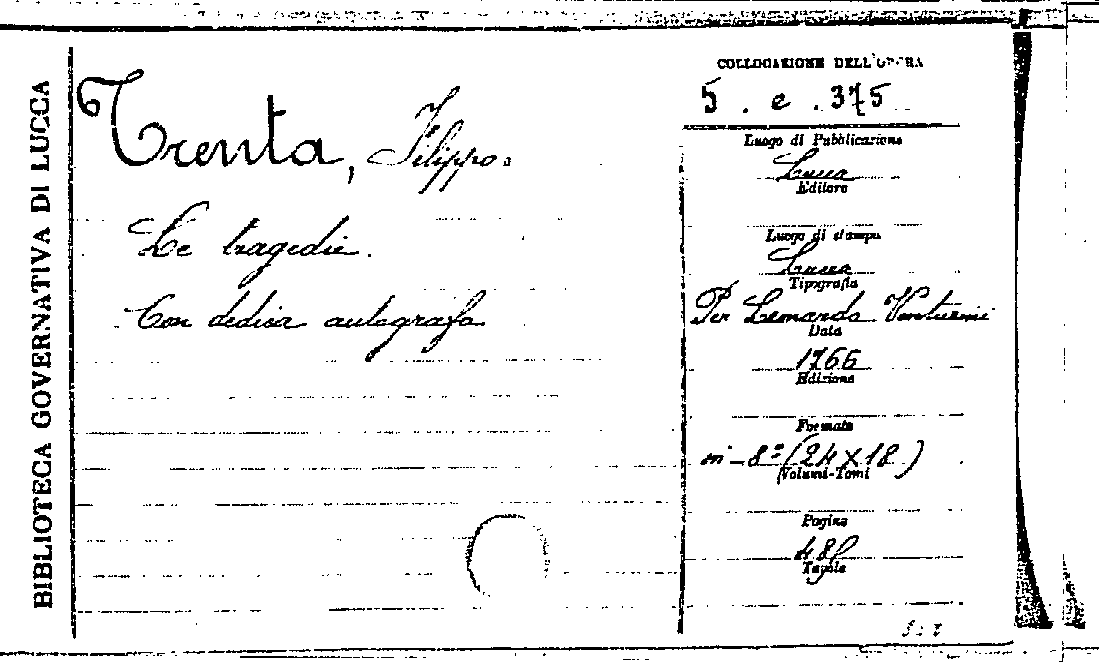 BIBLIOTECA GOVERNATIVA DI LUCCA
Trenta, Filippo.
Le tragedie.
Con dedica autografa
COLLOCAZIONE DELL'OPERA
5. e. 375
Luogo di Pubblicazione
Lucca
Editore
Luogo di stampa
Lucca
Tipografia
Per Leonardo Venturini
Data
1766
Edizione
Formato
in-8° (24 x 18)
Volumi-Tomi
Pagine
Tavole